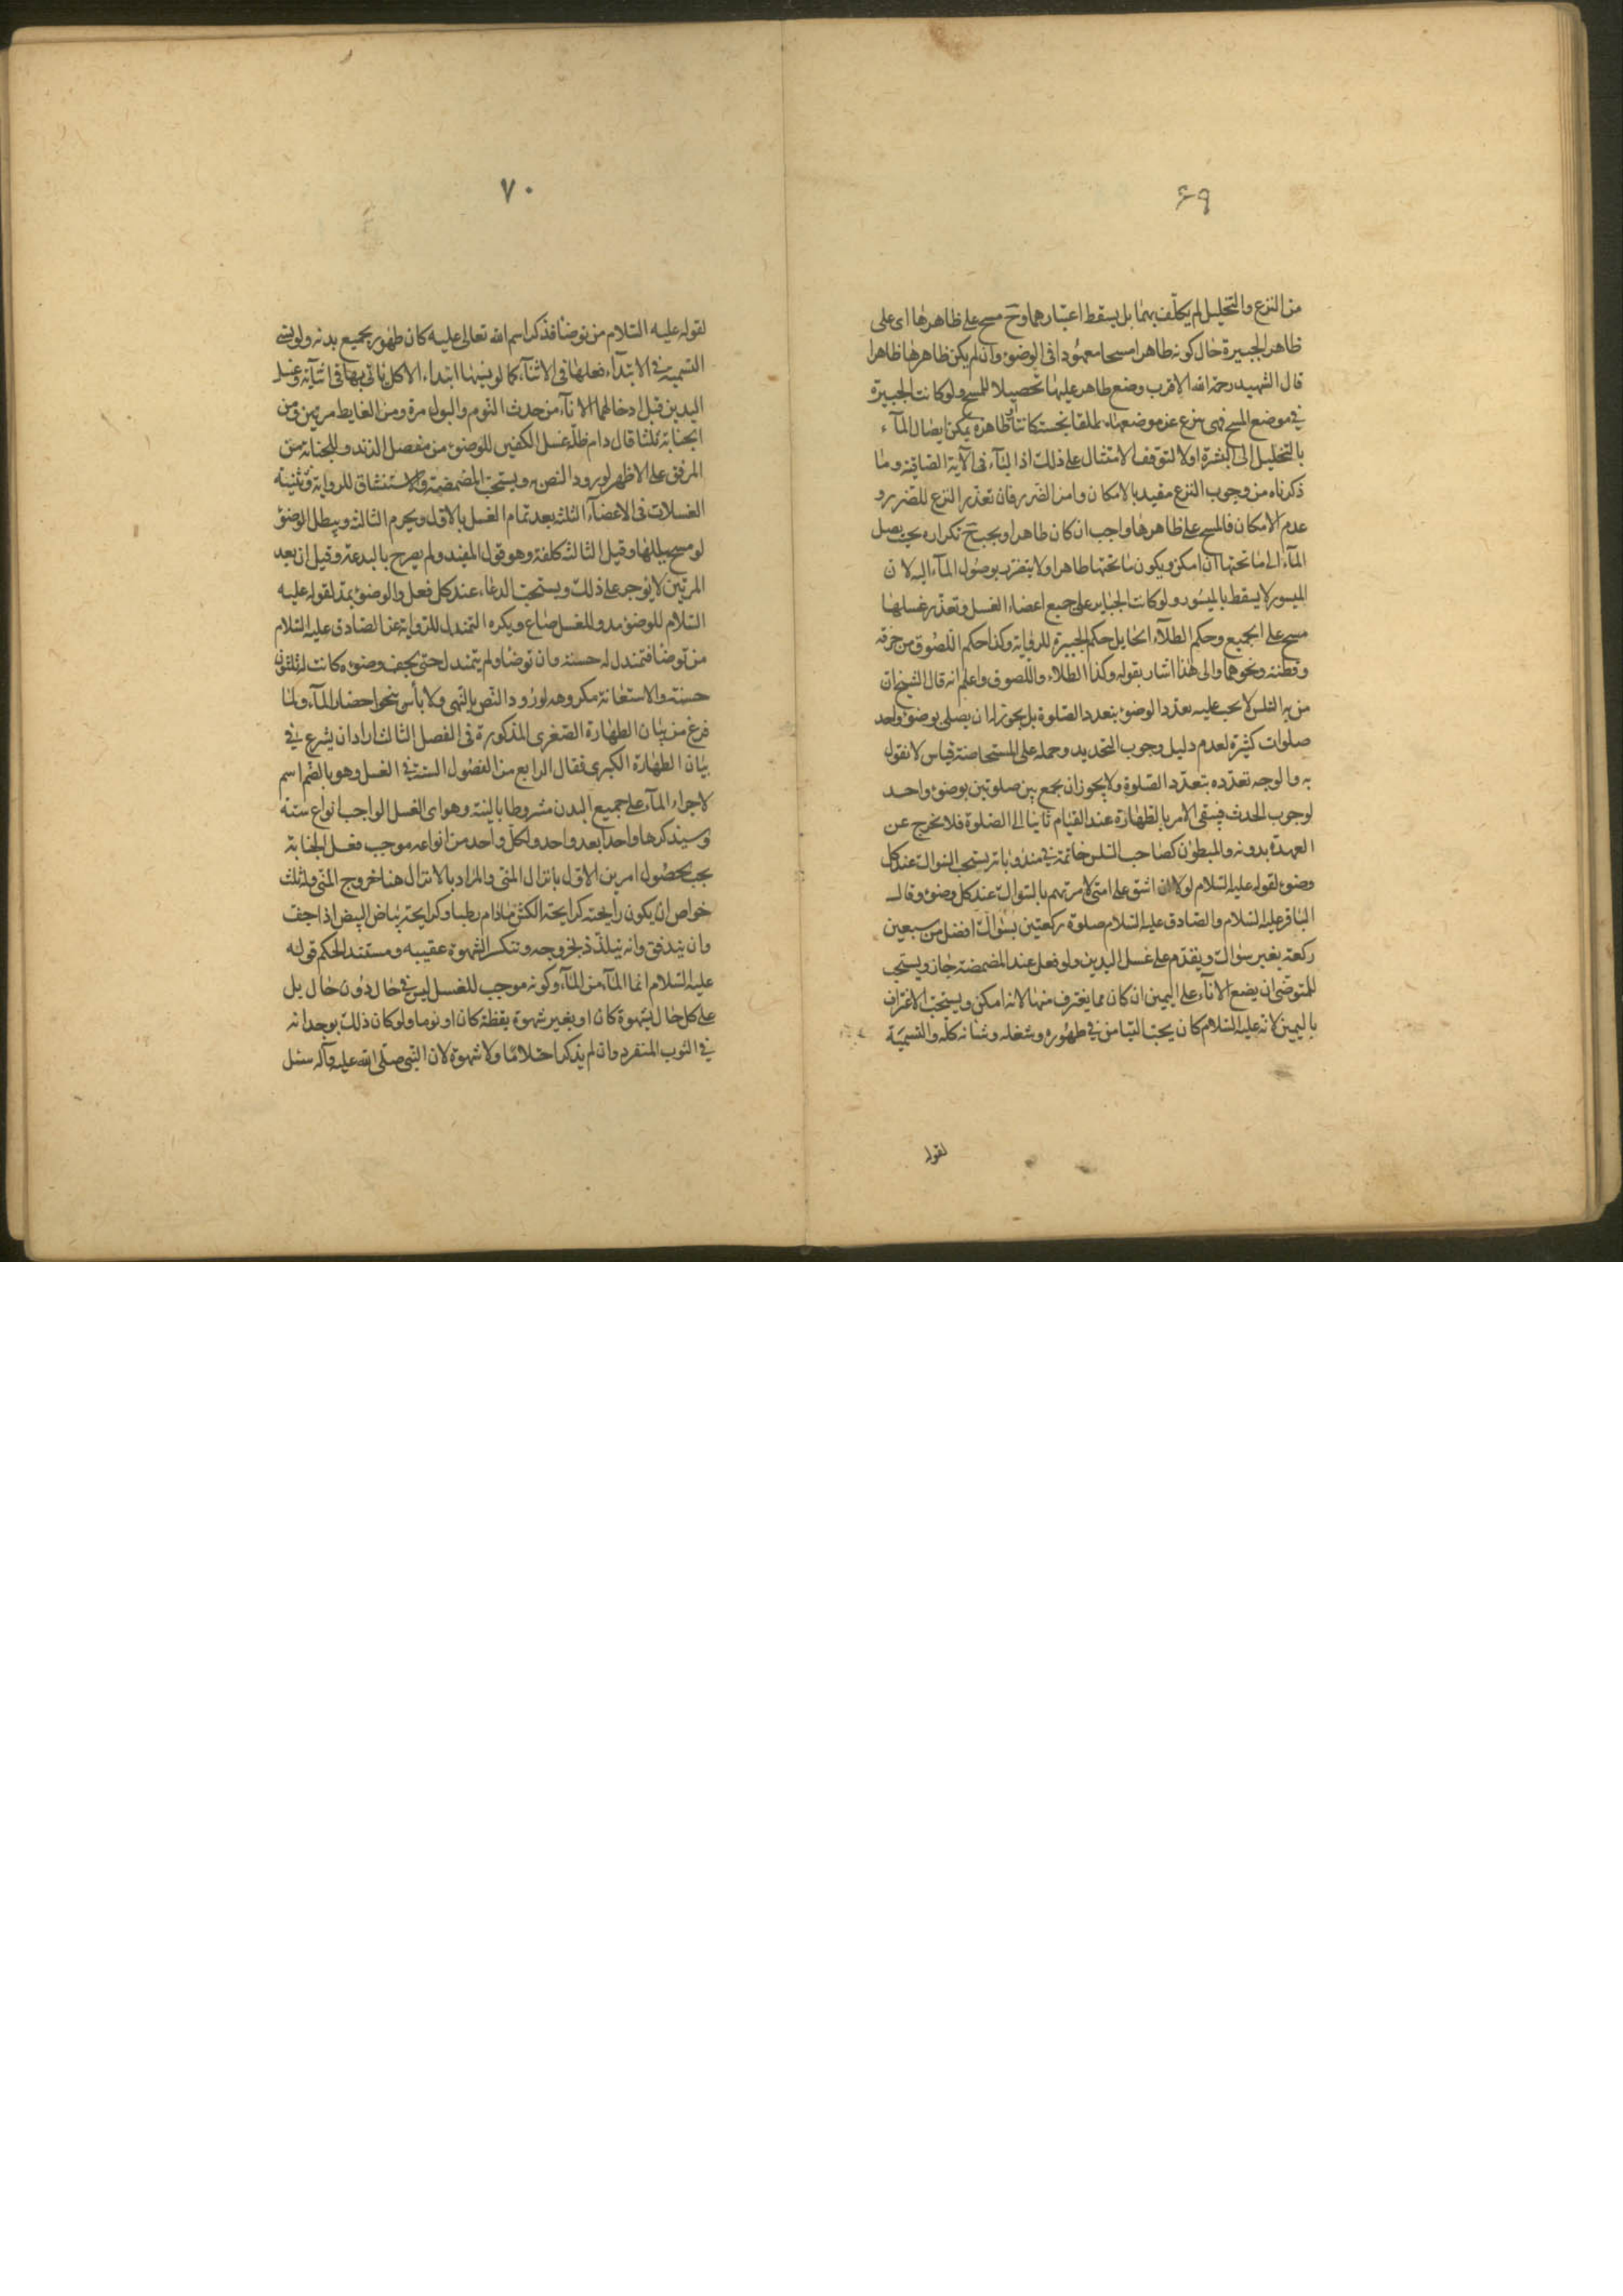 ۶۹
من النزع والتخليل لم يكلّف بهما بل يسقط اعتبارهما وح مسح على ظاهرها اى على
ظاهر الجبيرة حال كونه طاهرا مسحا معهودا فى الوضوء وان لم يكن ظاهرها طاهرا
قال الشهيد رحمه الله الاقرب وضع طاهر عليها تحصيلا للمسح ولو كانت الجبيرة
فى موضع المسح فهى تنزع عن موضعها مطلقا نجسة كانت او طاهرة يمكن ايصال المآء
بالتخليل الى البشرة اولا لتوقف الامتثال على ذلك اذ البآء فى الآية الصاقية وما
ذكرناه من وجوب النزع مقيد بالامكان وامن الضرر فان تعذر النزع للضرر و
عدم الامكان فالمسح على ظاهرها واجب ان كان طاهرا ويجب ح تكراره بحيث يصل
المآء الى ما تحتها ان امكن ويكون ما تحتها طاهرا ولا يتضرر بوصول المآء اليه لان
الميسور لا يسقط بالميسور ولو كانت الجباير على جميع اعضاء الغسل وتعذر غسلها
مسح على الجميع وحكم الطلآء الحايل حكم الجبيرة للرواية وكذا حكم اللصوق من خرقه
وقطنه ونحوهما والى هذا اشار بقوله وكذا الطلاء واللصوق واعلم انه قال الشيخ ان
من به السلس لا يجب عليه تعدد الوضوء بتعدد الصلوة بل يجوز له ان يصلى بوضوء واحد
صلوات كثيرة لعدم دليل وجوب التجديد وحمله على المستحاضة قياس لا نقول
به والوجه تعدده بتعدد الصلوة ولا يجوز ان يجمع بين صلوتين بوضوء واحد
لوجوب الحدث فيبقى الامر بالطهارة عند القيام ثانيا الى الصلوة فلا يخرج عن
العهدة بدونه والمبطون كصاحب السلس خاتمة فى مندوباته يستحب السواك عند كل
وضوء لقوله عليه السلام لولا ان اشق على امتى لامرتهم بالسواك عند كل وضوء وقال
الباقر عليه السلام والصادق عليه السلام صلوة ركعتين بسواك افضل من سبعين
ركعة بغير سواك ويقدم على غسل اليدين ولو فعل عند المضمضة جاز ويستحب
للمتوضى ان يضع الانآء على اليمين ان كان مما يغترف منها لانه امكن ويستحب الاغتراف
باليمين لانه عليه السلام كان يحب التيامن فى طهوره وشغله وشانه كله والتسمية
لقوله
۷۰
لقوله عليه السلام من توضا فذكر اسم الله تعالى عليه كان طهور بجميع بدنه ولو نسى
التسمية فى الابتدآء فعلها فى الاثنآء كما لو نسيها ابتداء الاكل ياتى بها فى اثنآئه وغسل
اليدين قبل ادخالهما الانآء من حدث النوم والبول مرة ومن الغايط مرتين ومن
الجنابة ثلثا قال دام ظله غسل الكفين للوضوء من مفصل الزند وللجنابة من
المرفق على الاظهر لورود النص به ويستحب المضمضة والاستنشاق للرواية وتثنية
الغسلات فى الاعضآء الثلثه بعد تمام الغسل بالاول ويحرم الثالثة ويبطل الوضوء
لو مسح ببللها وقيل الثالثة كلفة وهو قول المفيد ولم يصرح بالبدعة وقيل ان بعد
المرتين لا يوجر على ذلك ويستحب الدعاء عند كل فعل والوضوء بمد لقوله عليه
السلام للوضوء مد وللغسل صاع ويكره التمندل للرواية عن الصادق عليه السلام
من توضا فتمندل له حسنة وان توضا ولم يتمندل حتى يجف وضوءه كانت له ثلثون
حسنة والاستعانة مكروهه لورود النص بالنهى ولا بأس بنحو احضار المآء ولما
فرغ من بيان الطهارة الصغرى المذكورة فى الفصل الثالث اراد ان يشرع فى
بيان الطهارة الكبرى فقال الرابع من الفصول الستة فى الغسل وهو بالضم اسم
لاجراء المآء على جميع البدن مشروطا بالنية وهو اى الغسل الواجب انواع ستة
وسيذكرها واحدا بعد واحد ولكل واحد من انواعه موجب فغسل الجنابة
يجب بحصول امرين الاول بانزال المنى والمراد بالانزال هنا خروج المنى وله ثلث
خواص ان يكون رايحته كرايحة الكش مادام رطبا وكرايحة بياض البيض اذا جف
وان يندفق وانه يتلذذ بخروجه وتنكسر الشهوة عقيبه ومستند الحكم قوله
عليه السلام انما المآء من المآء وكونه موجب للغسل ليس فى حال دون حال بل
على كل حال بشهوة كان او بغير شهوة يقظة كان او نوما ولو كان ذلك بوجدانه
فى الثوب المنفرد وان لم يذكر احتلاما ولا شهوة لان النبى صلى الله عليه وآله سئل